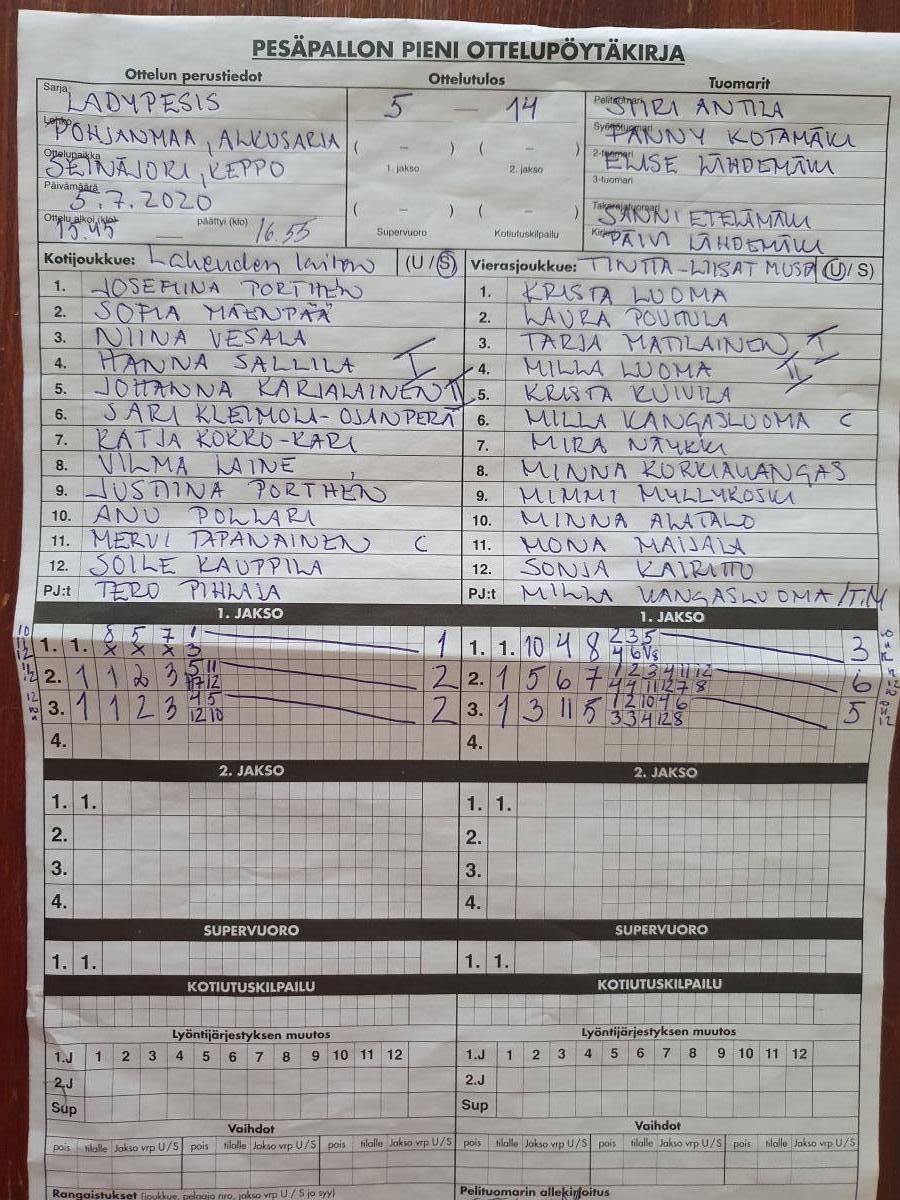 PESÄPALLON PIENI OTTELUPÖYTÄKIRJA
Ottelun perustiedot Ottelutulos Tuomarit
Sarja LADYPESIS
POHJANMAA, ALKUSARJA
Ottelupaikka SEINÄJOKI, KEPPO
Päivämäärä 5.7.2020
Ottelu alkoi (klo) 15.45 — päättyi (klo) 16.55
5 — 14
( – ) ( – )
1. jakso 2. jakso
( – ) ( – )
Supervuoro Kotiutuskilpailu
Pelituomari SIIRI ANTILA
Syöttötuomari FANNY KOTAMÄKI
2-tuomari ELISE LÄHDEMÄKI
3-tuomari
Takarajatuomari SANNI ETELÄMÄKI
Kirjuri PÄIVI LÄHDEMÄKI
Kotijoukkue: Lakeuden laiton (U / S)
1. JOSEFIINA PORTHÉN
2. SOFIA MÄENPÄÄ
3. NIINA VESALA
4. HANNA SALLILA I
5. JOHANNA KARJALAINEN II
6. SARI KLEIMOLA-OJANPERÄ
7. KATJA KOKKO-KARI
8. VILMA LAINE
9. JUSTIINA PORTHÉN
10. ANU POLLARI
11. MERVI TAPANAINEN C
12. SOILE KAUPPILA
PJ:t TERO PIHLAJA
Vierasjoukkue: TINTTA-LIISAT MUSTA (U / S)
1. KRISTA LUOMA
2. LAURA POUTULA
3. TARJA MATILAINEN I
4. MILLA LUOMA II
5. KRISTA KUIVILA
6. MILLA KANGASLUOMA C
7. MIRA NÄYKKI
8. MINNA KORKIAKANGAS
9. MIMMI MYLLYKOSKI
10. MINNA ALATALO
11. MONA MAIJALA
12. SONJA KAIRITTU
PJ:t MILLA KANGASLUOMA /T.M
1. JAKSO 1. JAKSO
1. 1. 8 5 7 1 1
x x x 3
2. 1 1 2 3 5 11 2
3. 1 1 2 3 4 5 2
12 10
4.
1. 1. 10 4 8 2 3 5 3
2. 1 5 6 7 1 2 3 4 11 12 6
4 4 11 12 7 8
3. 1 3 11 5 1 2 10 4 6 5
3 3 4 12 8
4.
2. JAKSO 2. JAKSO
1. 1. 1. 1.
2. 2.
3. 3.
4. 4.
SUPERVUORO SUPERVUORO
1. 1. 1. 1.
KOTIUTUSKILPAILU KOTIUTUSKILPAILU
Lyöntijärjestyksen muutos Lyöntijärjestyksen muutos
1.J 1 2 3 4 5 6 7 8 9 10 11 12 1.J 1 2 3 4 5 6 7 8 9 10 11 12
2.J 2.J
Sup Sup
Vaihdot Vaihdot
pois tilalle Jakso vrp U/S pois tilalle Jakso vrp U/S pois tilalle Jakso vrp U/S pois tilalle Jakso vrp U/S pois tilalle Jakso vrp U/S pois tilalle Jakso vrp U/S
Rangaistukset (joukkue, pelaaja nro, jakso vrp U / S ja syy) Pelituomarin allekirjoitus